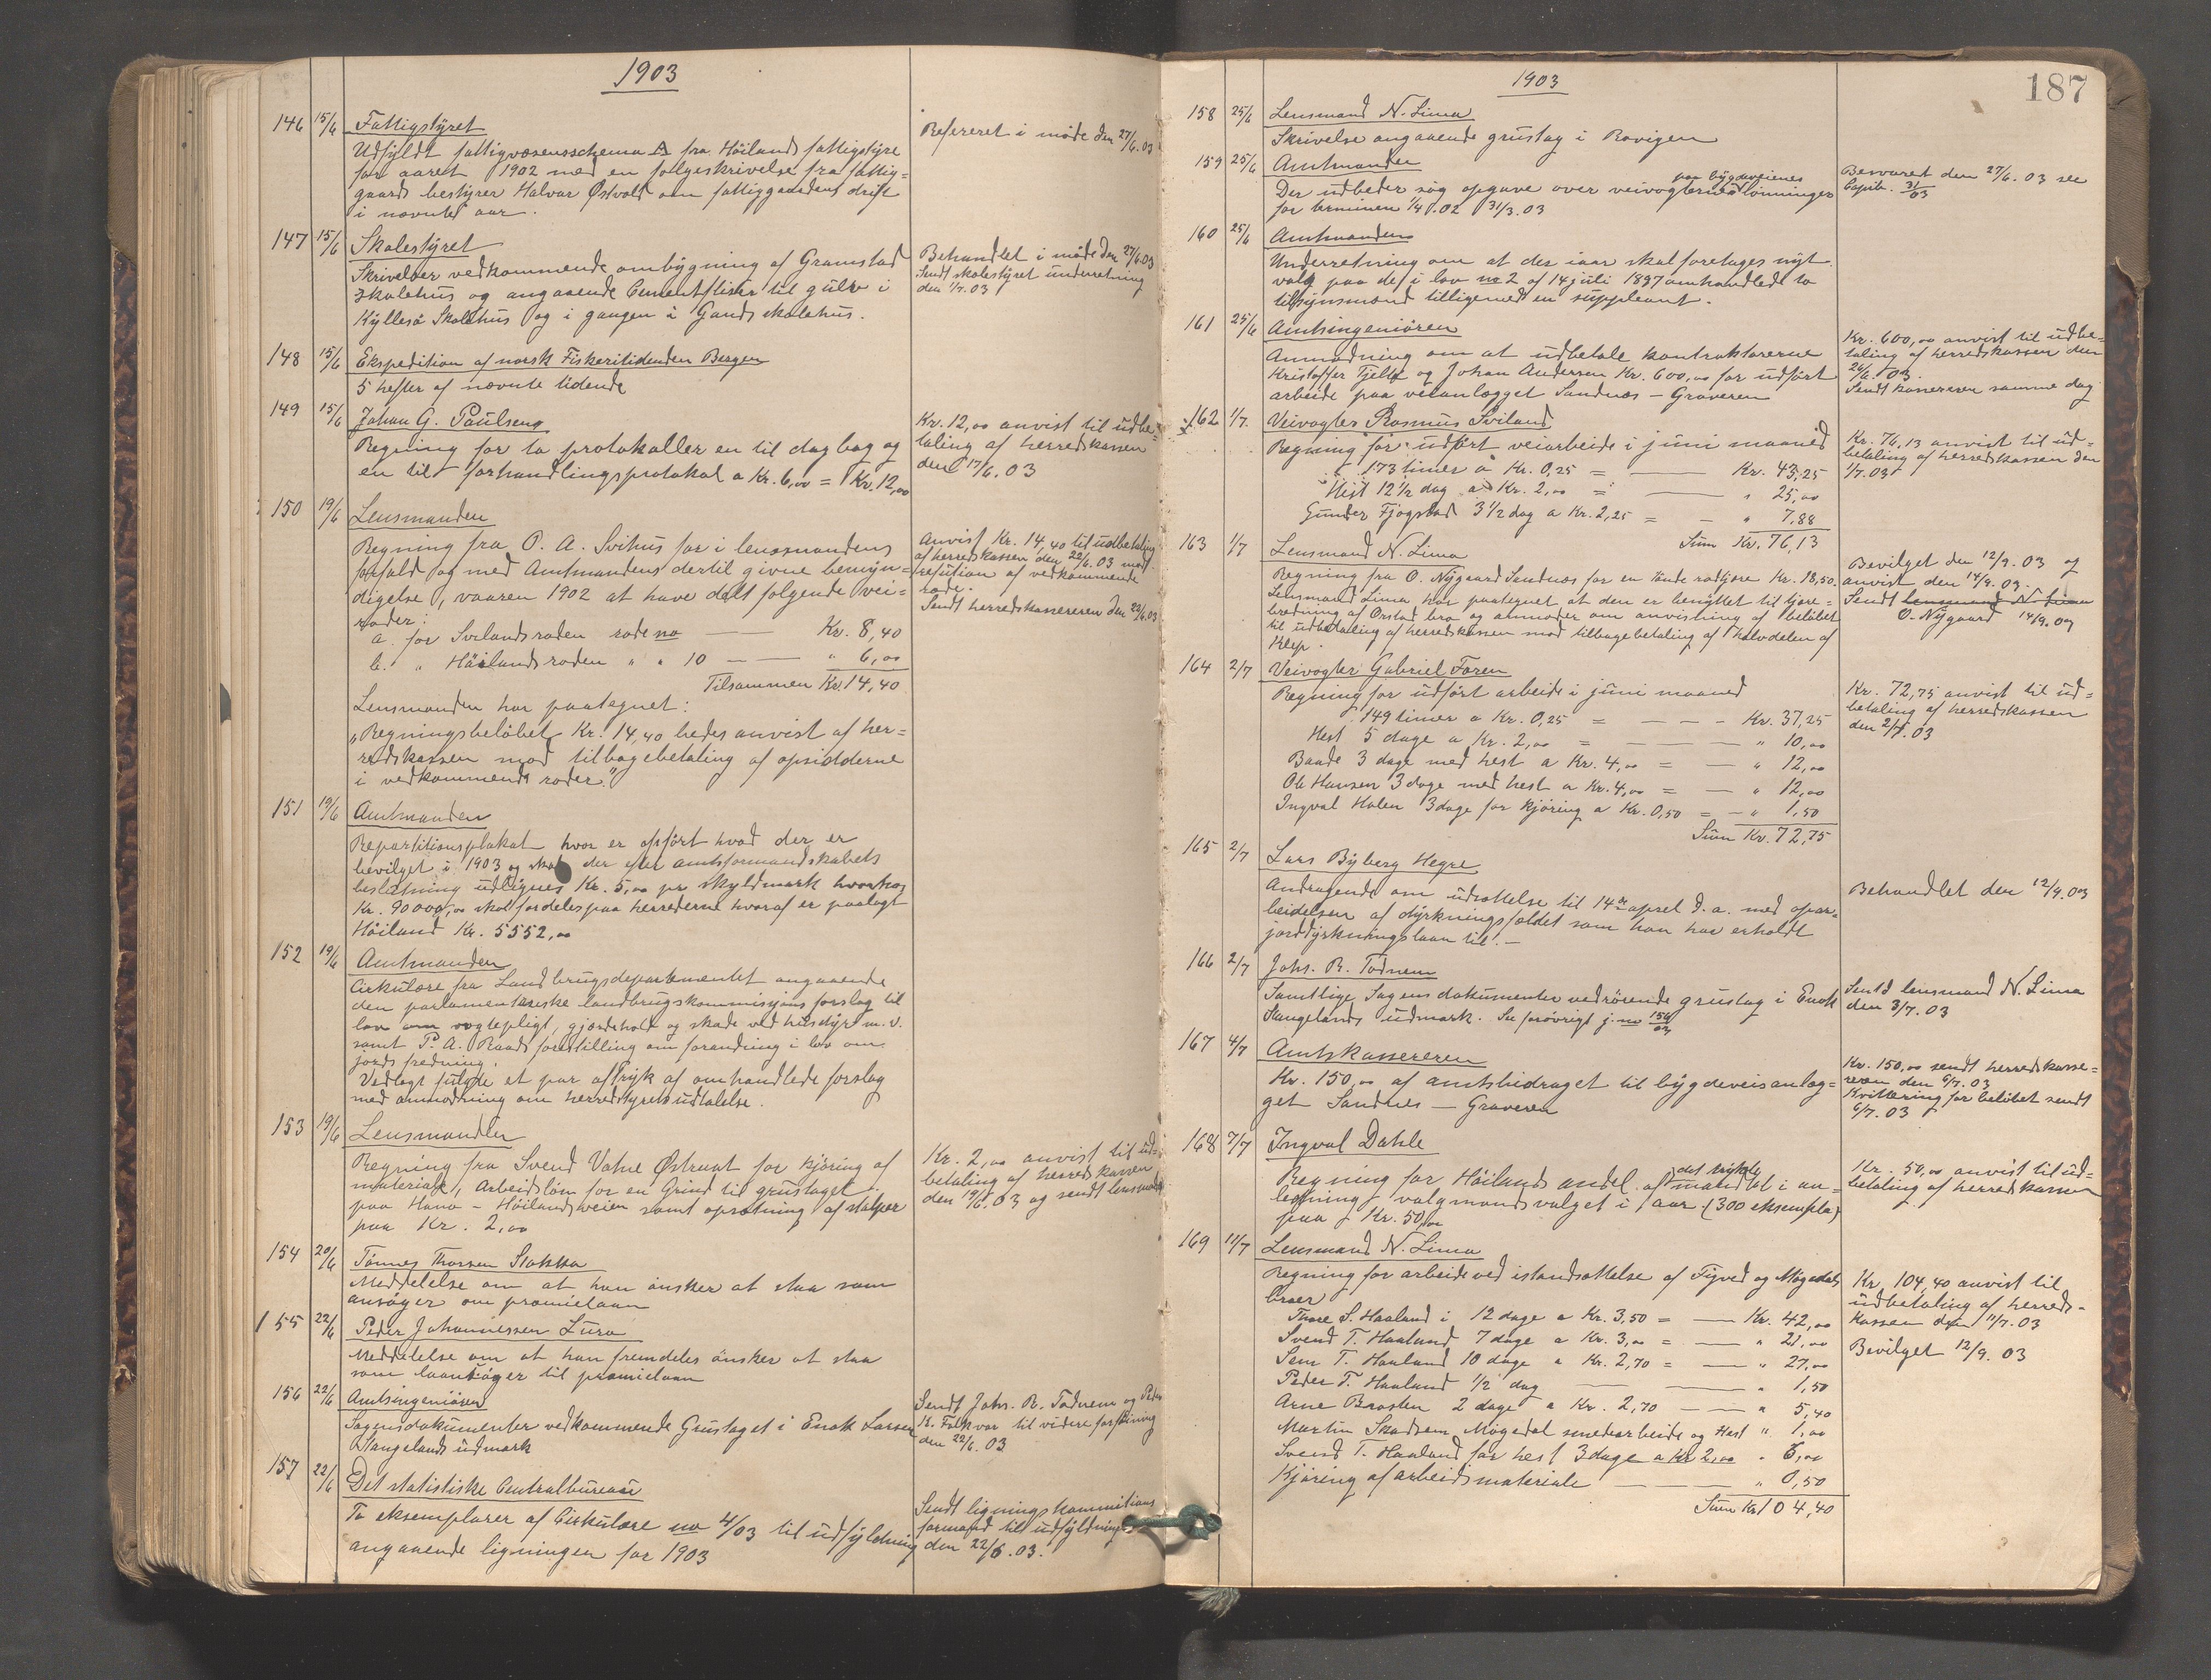 1903
146 15/6 Fattigstyret
Udfyldt fattigvæsensschema A fra Höilands fattigstyre
for aaret 1902 med en følgeskrivelse fra fattig=
gaards bestyrer Halvar Østvold om fattiggaardens drift
i nævnte aar.
Refereret i möde den 27/6.03
147 15/6 Skolestyret
Skrivelser vedkommende ombygning af Gramstad
skolehus og angaaende Cementfliser til gulv i
Kyllesö Skolehus og i gangen i Gands skolehus.
Behandlet i möde den 27/6.03
Sendt skolestyret underretning
den 1/7.03
148 15/6 Ekspedition af norsk Fiskeritidenden Bergen
5 hefter af nævnte tidende
149 15/6 Johan G. Paulsen
Regning for to protokoller en til dagbog og
en til forhandlingsprotokol a Kr. 6,00 = Kr. 12,00
Kr. 12,00 anvist til udbe=
taling af herredskassen
den 17/6.03
150 19/6 Lensmanden
Regning fra O. A. Svihus for i lensmandens
forfald og med Amtmandens dertil givne bemyn=
digelse, vaaren 1902 at have delt følgende vei=
roder:
a. for Svilandsroden rode no — Kr. 8,40
b. " Höilandsroden " " 10 — — " 6,00
Tilsammen Kr. 14,40
Lensmanden har paategnet:
"Regningsbeløbet Kr. 14,40 bedes anvist af her=
redskassen mod tilbagebetaling af opsidderne
i vedkommende roder."
Anvist Kr. 14,40 til udbetaling
af herredskassen den 22/6.03 mod
refution af vedkommende
rode.
Sendt herredskassereren den 22/6.03
151 19/6 Amtmanden
Repartitionsplakat hvor er opført hvad der er
bevilget i 1903 og skal der efter amtsformandskabets
beslutning udlignes Kr. 5,00 pr skyldmark hvorhos
Kr. 90000,00 skal fordeles paa herrederne hvoraf er paalagt
Höiland Kr. 5552,00
152 19/6 Amtmanden
Cirkulære fra Landbrugsdepartementet angaaende
den parlamentariske landbrugskommisjons forslag til
lov om vogtepligt, gjærdehold og skade ved husdyr m.v.
samt P. A. Raads forestilling om forandring i lov om
jords fredning.
Vedlagt fulgte et par aftryk af omhandlede forslag
med anmodning om herredstyrets udtalelse.
153 19/6 Lensmanden
Regning fra Svend Vatne Østraat for kjøring af
materiale, Arbeidsløn for en Grind til grustaget
paa Hana - Höilandsveien samt opsætning af stolper
paa Kr. 2,00
Kr. 2,00 anvist til ud=
betaling af herredskassen
den 19/6.03 og sendt lensmand
154 20/6 Tønnes Thorsen Stokka
Meddelelse om at han önsker at staa som
ansøger om præmielaan
155 22/6 Peder Johannessen Lura
Meddelelse om at han fremdeles önsker at staa
som laansöger til præmielaan
156 22/6 Amtsingeniören
Sagens dokumenter vedkommende Grustaget i Enok Larsen
Stangelands udmark
Sendt Johs. R. Todnem og Peder
R. til videre forføining
den 22/6.03
157 22/6 Det statistiske Centralbureau
To eksemplarer af Cirkulære no 4/03 til udfyldning
angaaende ligningen for 1903
Sendt ligningskommitions
formand til udfyldning
den 22/6.03.
187
1903
158 25/6 Lensmand N. Lima
Skrivelse angaaende grustag i Rovigen
159 25/6 Amtmanden
Der udbeder sig opgave over veivogternes lønninger
paa bygdeveienes
for terminen 1/4.02 31/3.03
Besvaret den 27/6.03 see
Copib. 31/03
160 25/6 Amtmanden
Underretning om at der iaar skal foretages nyt
valg paa de i lov no 2 af 14 juli 1897 omhandlede to
tilsynsmænd tilligemed en suppleant.
161 25/6 Amtsingeniören
Anmodning om at udbetale kontraktørerne
Kristoffer Tjelte og Johan Andersen Kr. 600,00 for udført
arbeide paa veianlægget Sandnæs - Graveren
Kr. 600,00 anvist til udbe=
taling af herredskassen den
26/6.03.
Sendt kassereren samme dag
162 1/7. Veivogter Rasmus Sviland
Regning for udført veiarbeide i juni maaned
173 timer a Kr. 0,25 = — Kr. 43,25
Hest 12 1/2 dag a Kr. 2,00 = — " 25,00
Gunder Fjogstad 3 1/2 dag a Kr. 2,25 = — " 7,88
Sum Kr. 76,13
Kr. 76,13 anvist til ud=
betaling af herredskassen den
1/7.03
163 1/7 Lensmand N. Lima
Regning fra O. Nygaard Sandnæs for en tønde rødtjære Kr. 18,50.
Lensmand Lima har paategnet at den er benyttet til tjære=
bredning af Orstad bro og anmoder om anvisning af beløbet
til udbetaling af herredskassen mod tilbagebetaling af halvdelen af
Klep.
Bevilget den 12/9.03 og
anvist den 14/9.03.
Sendt lensmand N. Lima
O. Nygaard 14/9.03
164 2/7 Veivogter Gabriel Foren
Regning for udført arbeide i juni maaned
149 timer a Kr. 0,25 = — — — Kr. 37,25
Hest 5 dage a Kr. 2,00 = — " 10,00
Baade 3 dage med hest a Kr. 4,00 = — " 12,00
Ole Hansen 3 dage med hest a Kr. 4,00 = — " 12,00
Ingval Holen 3 dage for kjøring a Kr. 0,50 = — " 1,50
Sum Kr. 72,75
Kr. 72,75 anvist til ud=
betaling af herredskassen
den 2/7.03
165 2/7 Lars Byberg Hegre
Andragende om udsættelse til 14de april d.a. med opar=
beidelsen af dyrkningsfeldet som han har erholdt
jorddyrkningslaan til. —
Behandlet den 12/9.03
166 2/7 Johs. R. Todnem
Samtlige Sagens dokumenter vedrörende grustag i Enok
Stangelands udmark. Se forövrigt j. no 156/03
Sendt lensmand N. Lima
den 3/7.03
167 4/7 Amtskassereren
Kr. 150,00 af amtsbidraget til bygdeveisanlæg=
get Sandnes — Graveren
Kr. 150,00 sendt herredskasse=
reren den 6/7.03
Kvittering for beløbet sendt
6/7.03
168 7/7 Ingval Dahle
Regning for Höilands andel af mandtal i an=
det trykte
ledning valgmandsvalget i aar (300 eksempla)
paa Kr. 50,00
Kr. 50,00 anvist til ud=
betaling af herredskassen
169 11/7 Lensmand N. Lima
Regning for arbeide ved istandsættelse af Figved og Mögedals
broer
Thore S. Haaland i 12 dage a Kr. 3,50 = — Kr. 42,00
Svend T. Haaland 7 dage a Kr. 3,00 = — " 21,00
Sem T. Haaland 10 dage a Kr. 2,70 = — " 27,00
Peder T. Haaland 1/2 dag — — " 1,50
Arne Brosten 2 dage a Kr. 2,70 — — " 5,40
Martin Skadsem Mögedal smedearbeide og Hest " 1,00
Svend T. Haaland for hest 3 dage a Kr 2,00 " 6,00
Kjøring af arbeidsmateriale — — — " 0,50
Sum Kr. 104,40
Kr. 104,40 anvist til
udbetaling af herreds-
kassen den 11/7.03
Bevilget 12/9.03